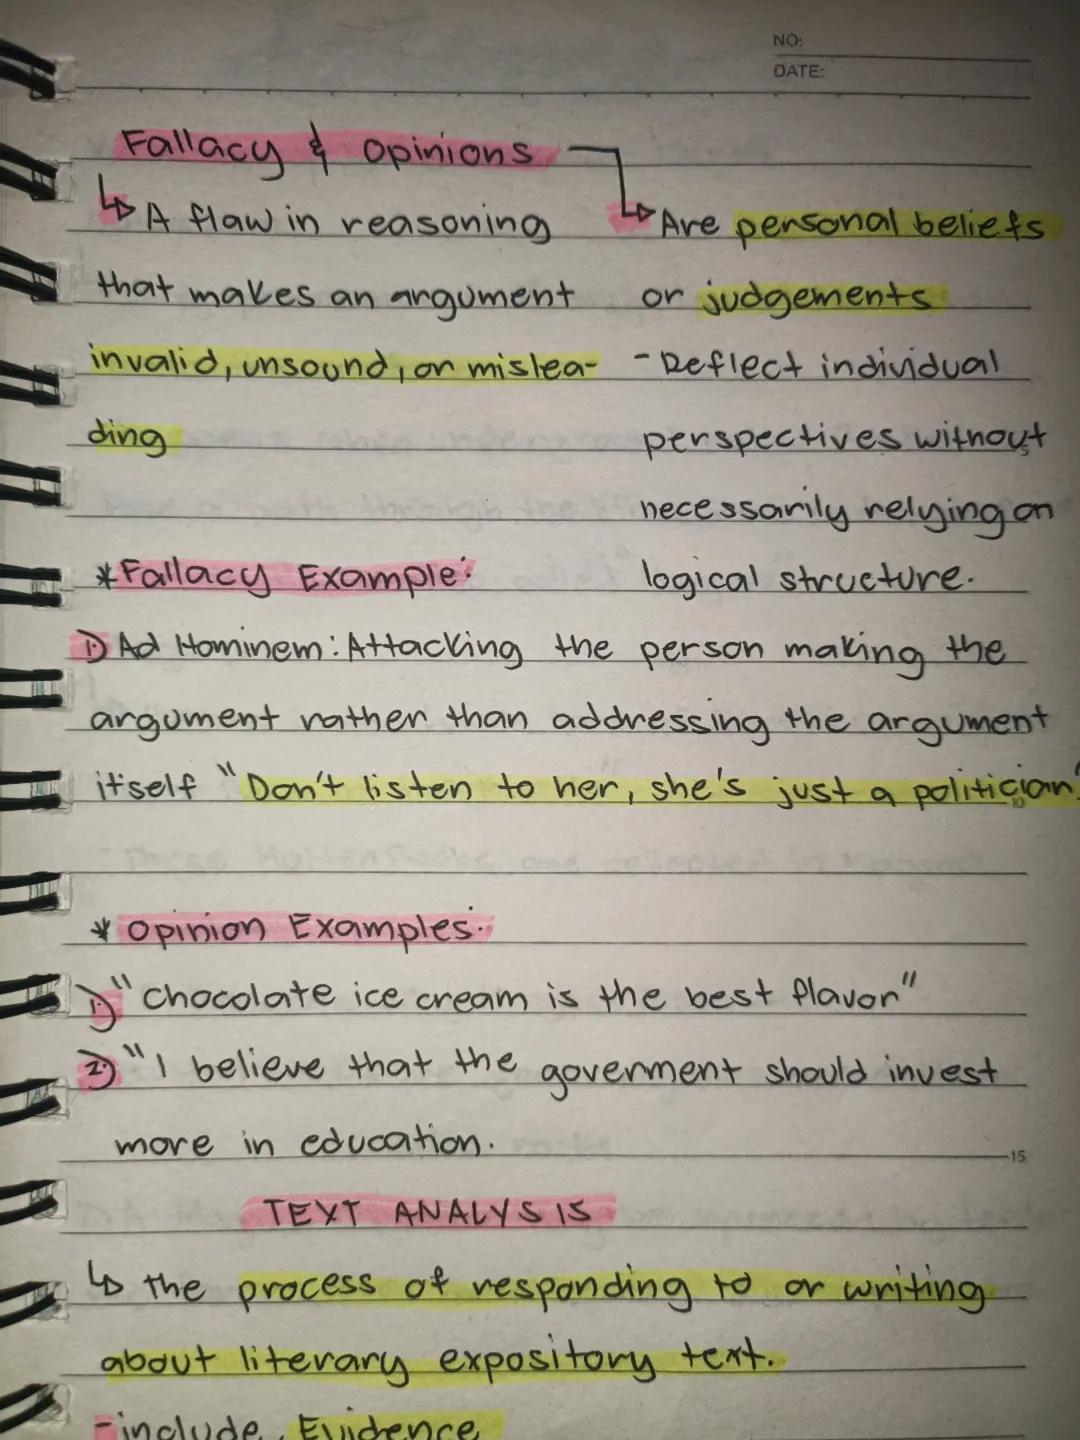 NO:
DATE:
Fallacy & Opinions
↳ A flaw in reasoning
that makes an argument
invalid, unsound, or mislea-
ding
↳ Are personal beliefs
or judgements
- Reflect individual
perspectives without
necessarily relying on
logical structure.
* Fallacy Example:
1) Ad Hominem: Attacking the person making the
argument rather than addressing the argument
itself "Don't listen to her, she's just a politician"
* Opinion Examples:
1) "chocolate ice cream is the best flavor"
2) "I believe that the goverment should invest
more in education.
15
TEXT ANALYSIS
↳ the process of responding to or writing
about literary expository text.
- include Evidence